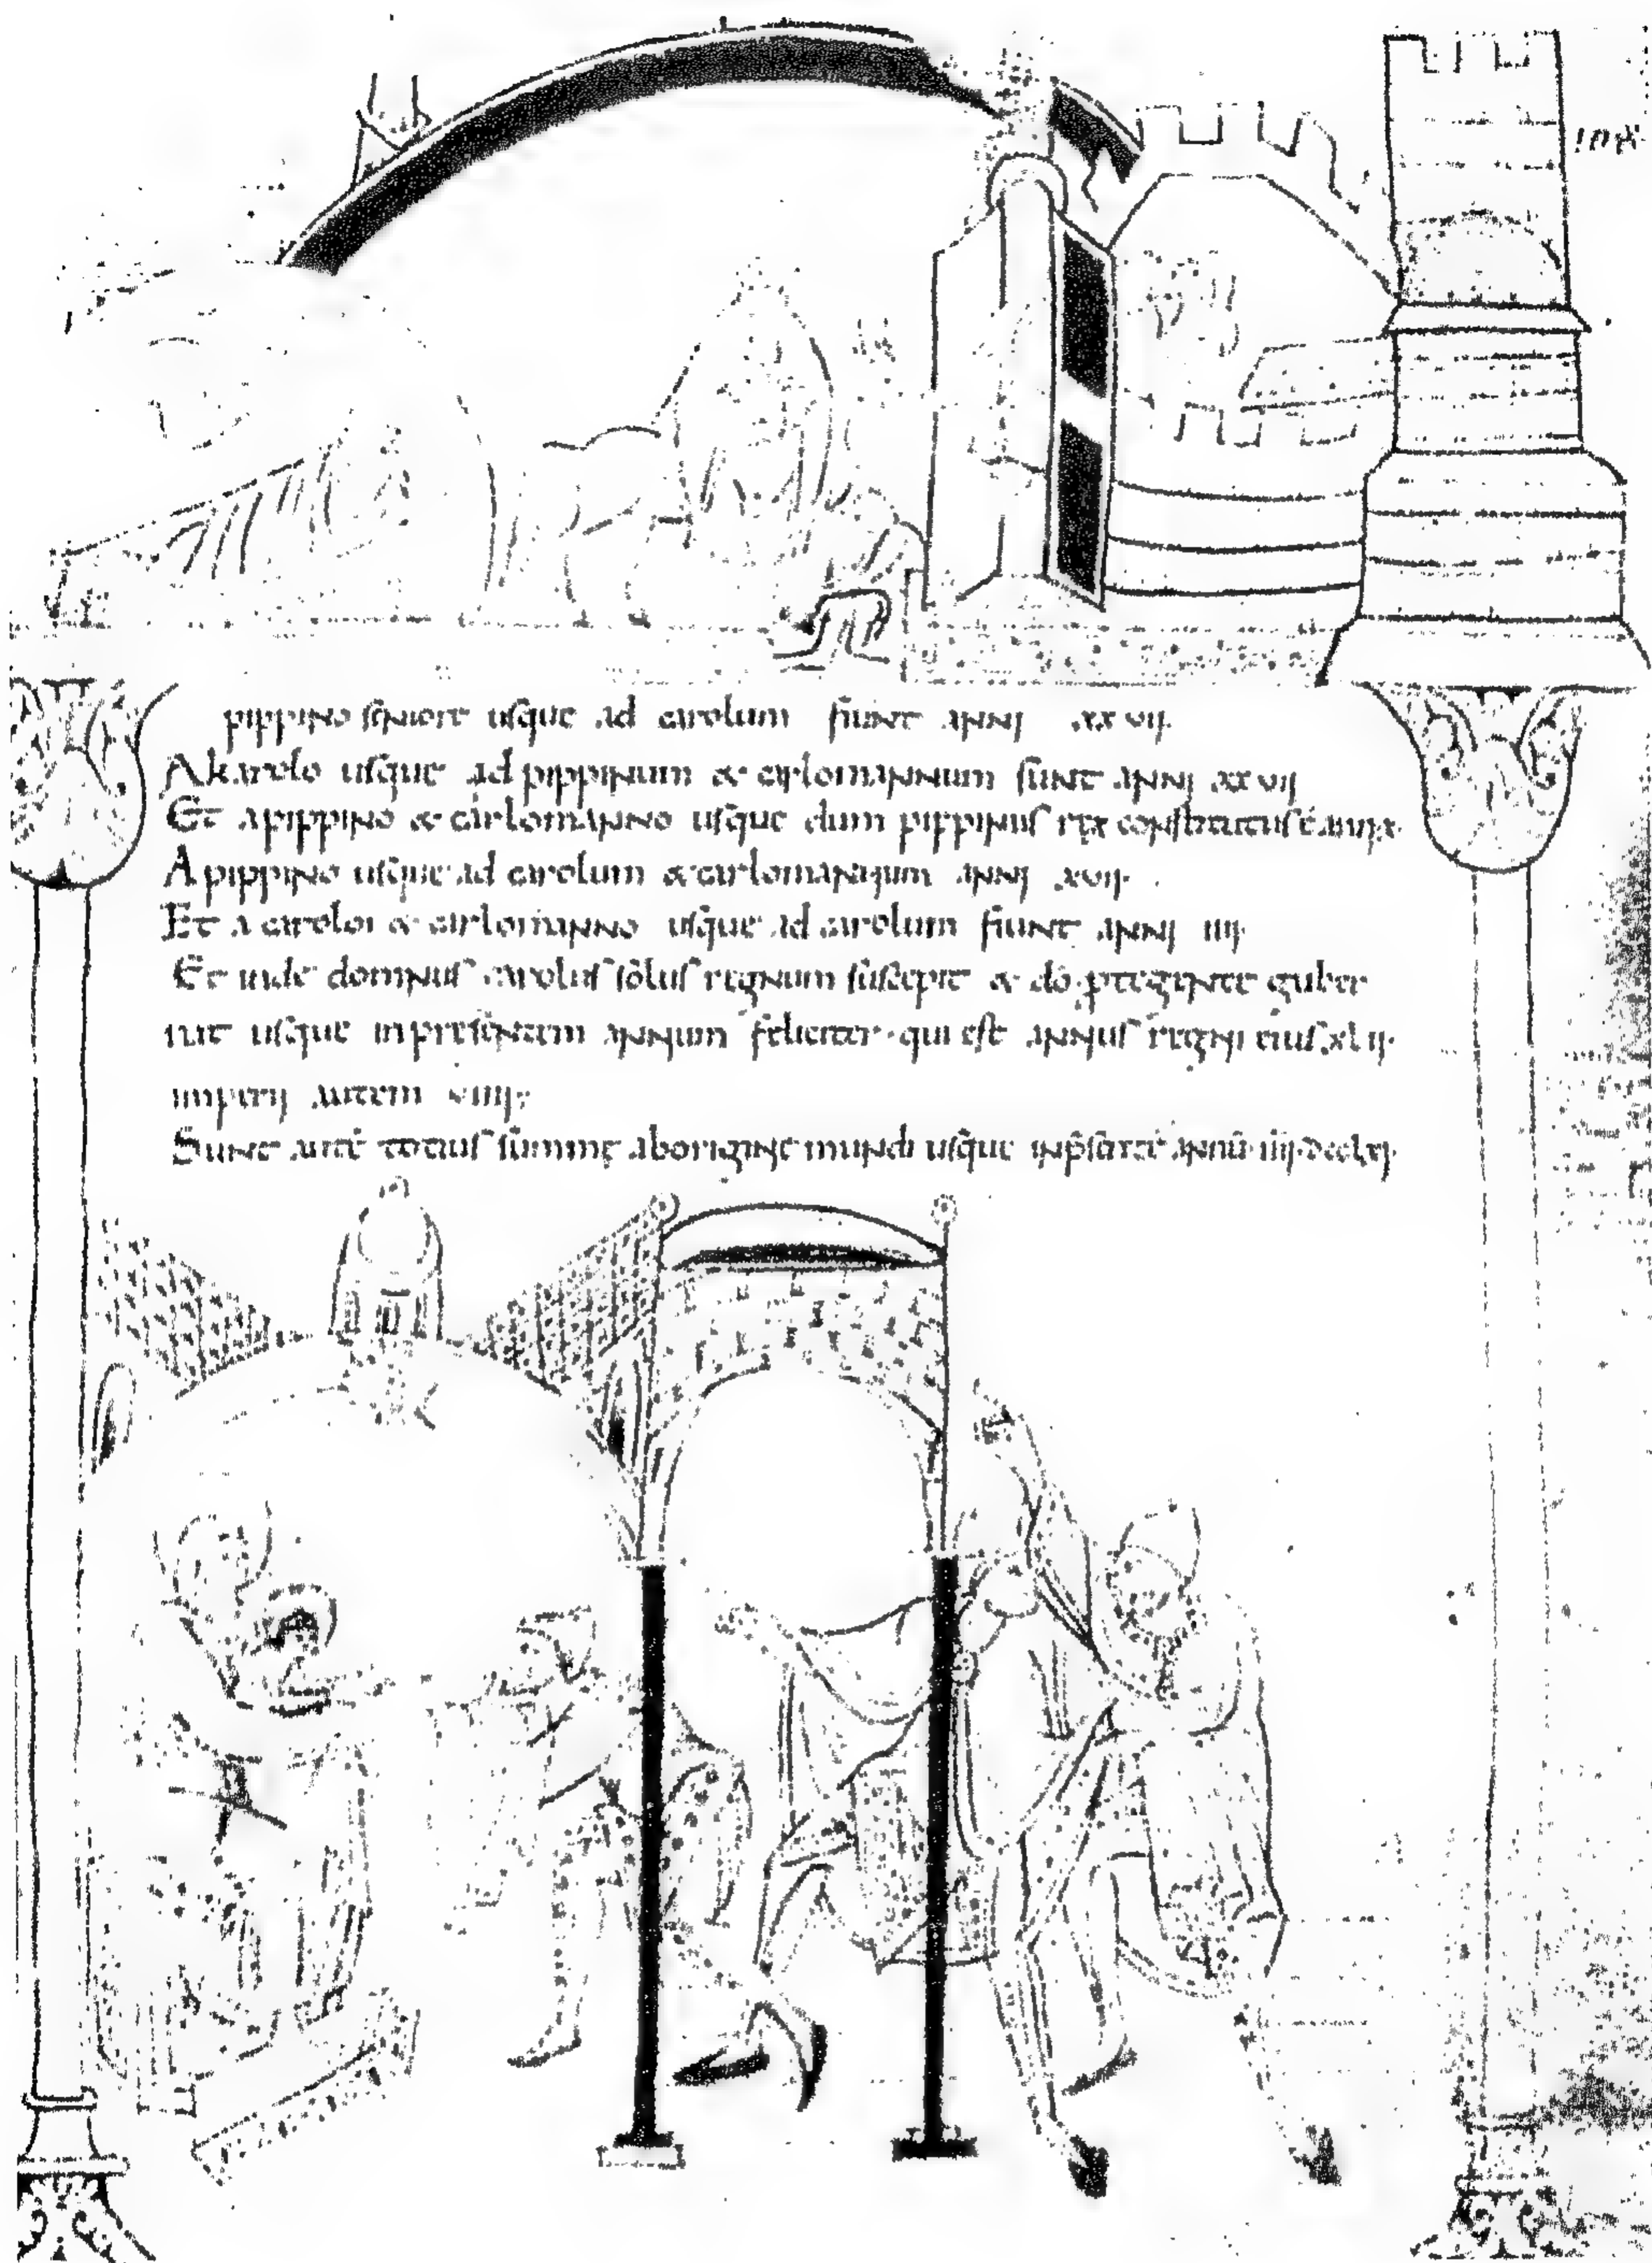 108
pippino seniore usque ad carolum fiunt annj xxvij.
A karolo usque ad pippinum & carlomannum sunt annj xxvij
Et a pippino & carlomanno usque dum pippinus rex constitutus ē. annj x.
A pippino usque ad carolum & carlomannum annj xvij.
Et a carolo & carlomanno usque ad carolum fiunt annj iiij.
Et inde domnus carolus solus regnum suscepit & dō. ptegente guber
nat usque in presentem annum feliciter. qui est annus regni eius. xlij.
imperij autem viiij;
Sunt autē totius summe ab origine mundi usque in psentē annū. iiij.